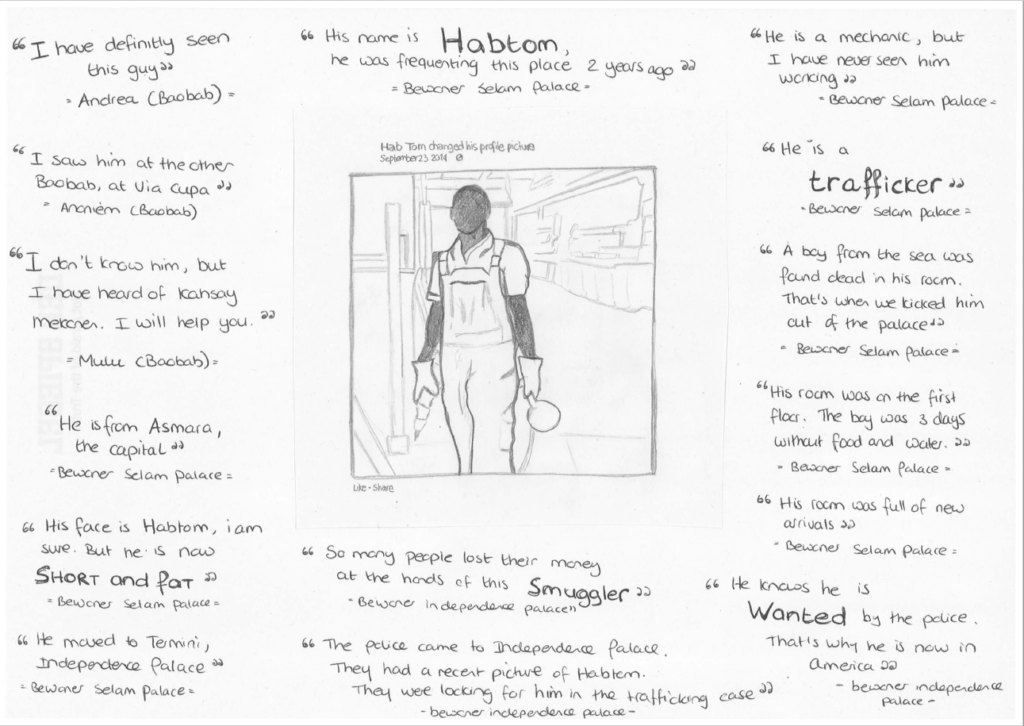 “ I have definitly seen
this guy”
= Andrea (Baobab) =
“ I saw him at the other
Baobab, at Via Cupa ”
= Ananièm (Baobab)
“ I don't know him, but
I have heard of Kahsay
mekonen. I will help you. ”
= Mulu (Baobab) =
“ He is from Asmara,
the capital ”
= Bewoner Selam Palace =
“ His face is Habtom, i am
sure. But he is now
SHORT and fat ”
= Bewoner Selam Palace =
“ He moved to Termini,
Independence Palace ”
= Bewoner Selam Palace =
“ His name is Habtom,
he was frequenting this place 2 years ago ”
= Bewoner Selam Palace =
Hab Tom changed his profile picture
September 23 2014
Like - Share
“ So many people lost their money
at the hands of this Smuggler ”
- Bewoner independence palace"
“ The police came to Independence Palace.
They had a recent picture of Habtom.
They wee looking for him in the trafficking case ”
- bewoner independence palace -
“ He is a mechanic, but
I have never seen him
working ”
- Bewoner Selam Palace =
“ He is a
trafficker ”
- Bewoner Selam Palace =
“ A boy from the sea was
found dead in his room.
That's when we kicked him
out of the palace ”
- Bewoner Selam Palace =
“ His room was on the first
floor. The boy was 3 days
without food and water. ”
- Bewoner Selam Palace =
“ His room was full of new
arrivals ”
- Bewoner Selam Palace =
“ He knows he is
Wanted by the police.
That's why he is now in
America ”
- bewoner independence
palace -